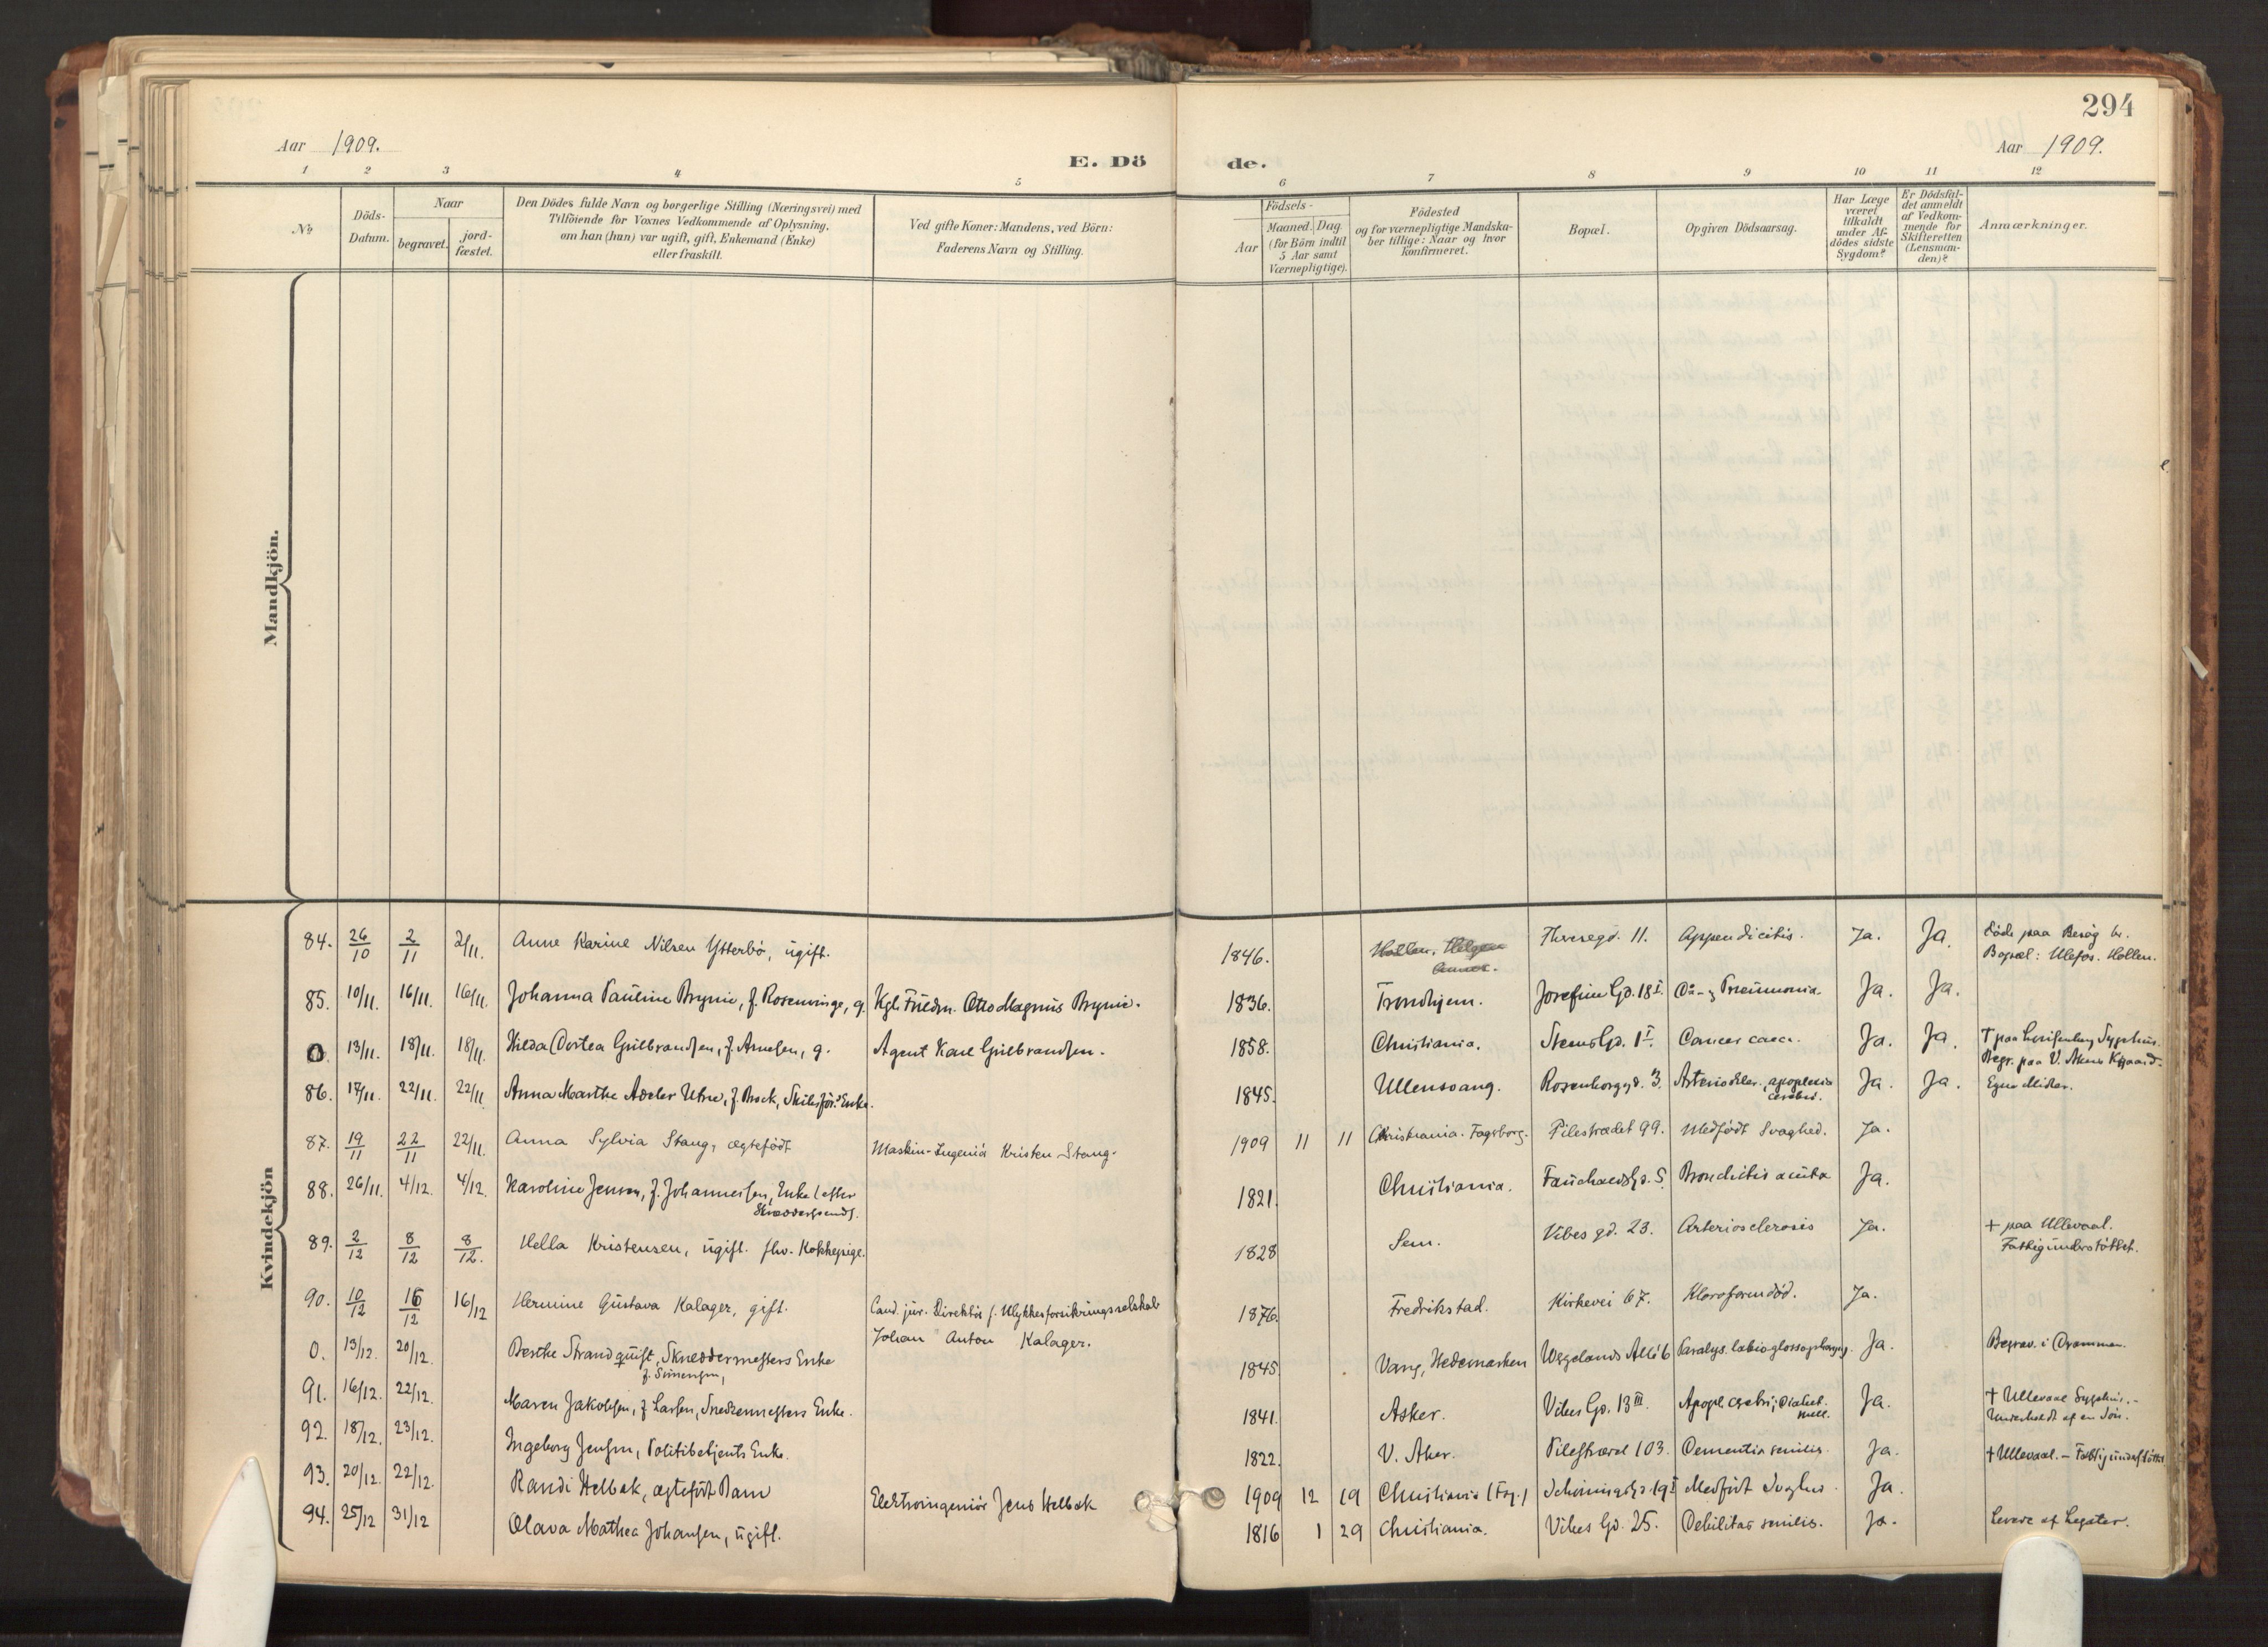 294
Aar 1909.
E. Dö de.
Aar 1909.
1 2 3 4 5 6 7 8 9 10 11 12
No
Döds-Datum.
Naar
begravet.
jord-fæstet.
Den Dödes fulde Navn og borgerlige Stilling (Næringsvei) med
Tilföiende for Voxnes Vedkommende af Oplysning,
om han (hun) var ugift, gift, Enkemand (Enke)
eller fraskilt.
Ved gifte Koner: Mandens, ved Börn:
Faderens Navn og Stilling.
Födsels-
Aar
Maaned. Dag.
(for Börn indtil
5 Aar samt
Værnepligtige).
Födested
og for værnepligtige Mandska-
ber tillige: Naar og hvor
konfirmeret.
Bopæl.
Opgiven Dödsaarsag.
Har Læge
været
tilkaldt
under Af-
dödes sidste
Sygdom?
Er Dödsfal-
det anmeldt
af Vedkom-
mende for
Skifteretten
(Lensman-
den)?
Anmærkninger.
Mandkjön.
Kvindekjön
84. 26/10 2/11 2/11. Anne Karine Nilsen Ytterbö, ugift. 1846. Holden. Thversgd. 11. Appendicitis. Ja. Ja. Döde paa Besög her.
Bopæl: Ulefos. Hollen.
85. 10/11. 16/11. 16/11. Johanna Pauline Brynie, f. Rosenvinge, g. Kgl. Fuldm. Otto Magnus Brynie. 1836. Trondhjem. Josefine Gd. 18 I. Pneumonia. Ja. Ja.
0. 13/11. 18/11. 18/11. Hilda Dortea Gulbrandsen, f. Arnesen, g. Agent Karl Gulbrandsen. 1858. Christiania. Stens Gd. 1 I. Cancer coeci. Ja. Ja. † paa Lovisenberg Sygehus.
Begr. paa V. Akers Kgaard.
86. 17/11. 22/11. 22/11. Anna Marthe Adeler Utne, f. Brock, Skibsför. Enke. 1845. Ullensvang. Rosenborggd. 3. Arterioskler., apoplexia
cerebri. Ja. Ja. Egne Midler.
87. 19/11 22/11 22/11. Anna Sylvia Stang, ægtefödt Maskin-Ingeniör Kristen Stang. 1909 11 11 Christiania. Fagerborg. Pilestrædet 99. Medfödt Svaghed. Ja.
88. 26/11. 4/12. 4/12. Karoline Jensen, f. Johannesen, Enke (efter
Skræddersvend). 1821. Christiania. Fauchalds Gd. 5. Bronchitis acuta Ja.
89. 2/12 8/12 8/12. Hella Kristensen, ugift. fhv. Kokkepige. 1828 Sem. Vibes gd. 23. Arteriosclerosis Ja. † paa Ullevaal.
Fattigunderstöttet.
90. 10/12 16/12 16/12 Hermine Gustava Kalager, gift. Cand. jur. Direktör f. Ulykkesforsikringsselskab
Johan Anton Kalager. 1876. Fredrikstad. Kirkevei 67. Kloroformdöd. Ja.
0. 13/12. 20/12. Berthe Strandquist, Skreddermesters Enke
f. Simensen, 1845. Vang, Hedemarken Wergelands Allé 6 Paralys. labioglossopharyng. Ja. Begrav. i Drammen.
91. 16/12. 22/12. Maren Jakobsen, f. Larsen, Snedkermesters Enke. 1841. Asker. Vibes Gd. 13 III. Apopl. cerebri; Diabet.
mell. Ja. † Ullevaal Sygehus.-
Underholdt af en Sön.
92. 18/12. 23/12. Ingeborg Jensen, Politibetjents Enke. 1822. V. Aker. Pilestræd 103. Dementia senilis. Ja. † Ullevaal. - Fattigunderstöttet
93. 20/12. 22/12. Randi Helbak, ægtefödt Barn Elektroingeniör Jens Helbak 1909 12 19 Christiania (Fag.) Schönings Gd. 19 I Medfödt Svaghed. Ja.
94. 25/12 31/12 Olava Mathea Johansen, ugift. 1816 1 29 Christiania. Vibes Gd. 25. Debilitas senilis. Ja. Levede af Legater.